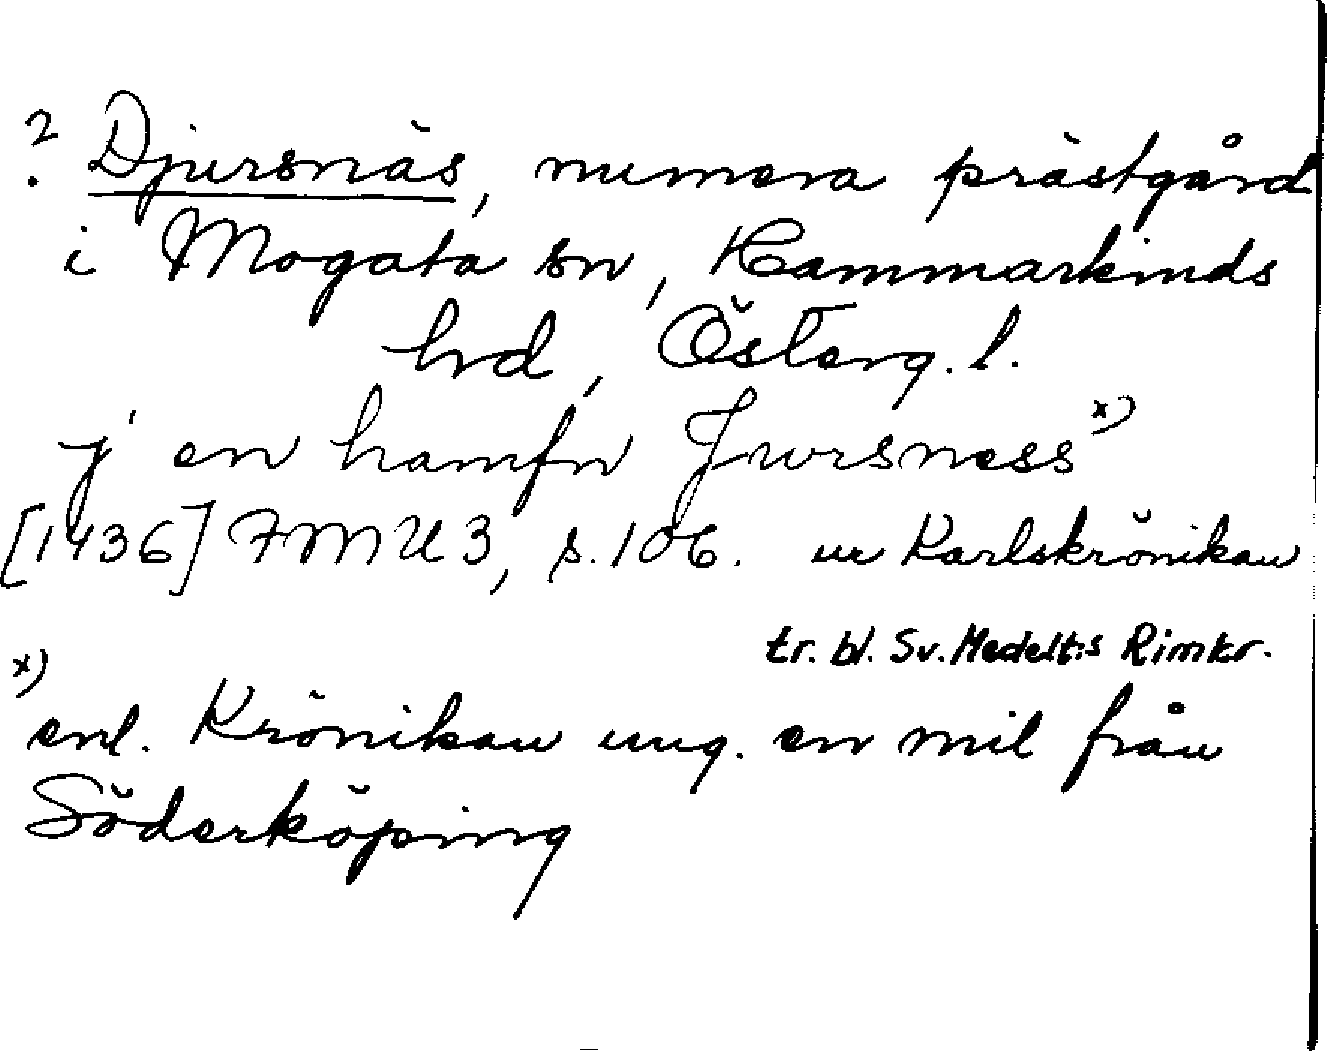 ? Djursnäs, numera prästgård
i Mogata sn, Hammarkinds
hrd, Österg.l.
j en hamfn Jwrsness x)
[1436] FMU 3, s.106. ur Karlskrönikan
tr. bl. Sv. Medelt:s Rimkr.
x)
enl. Krönikan ung. en mil från
Söderköping